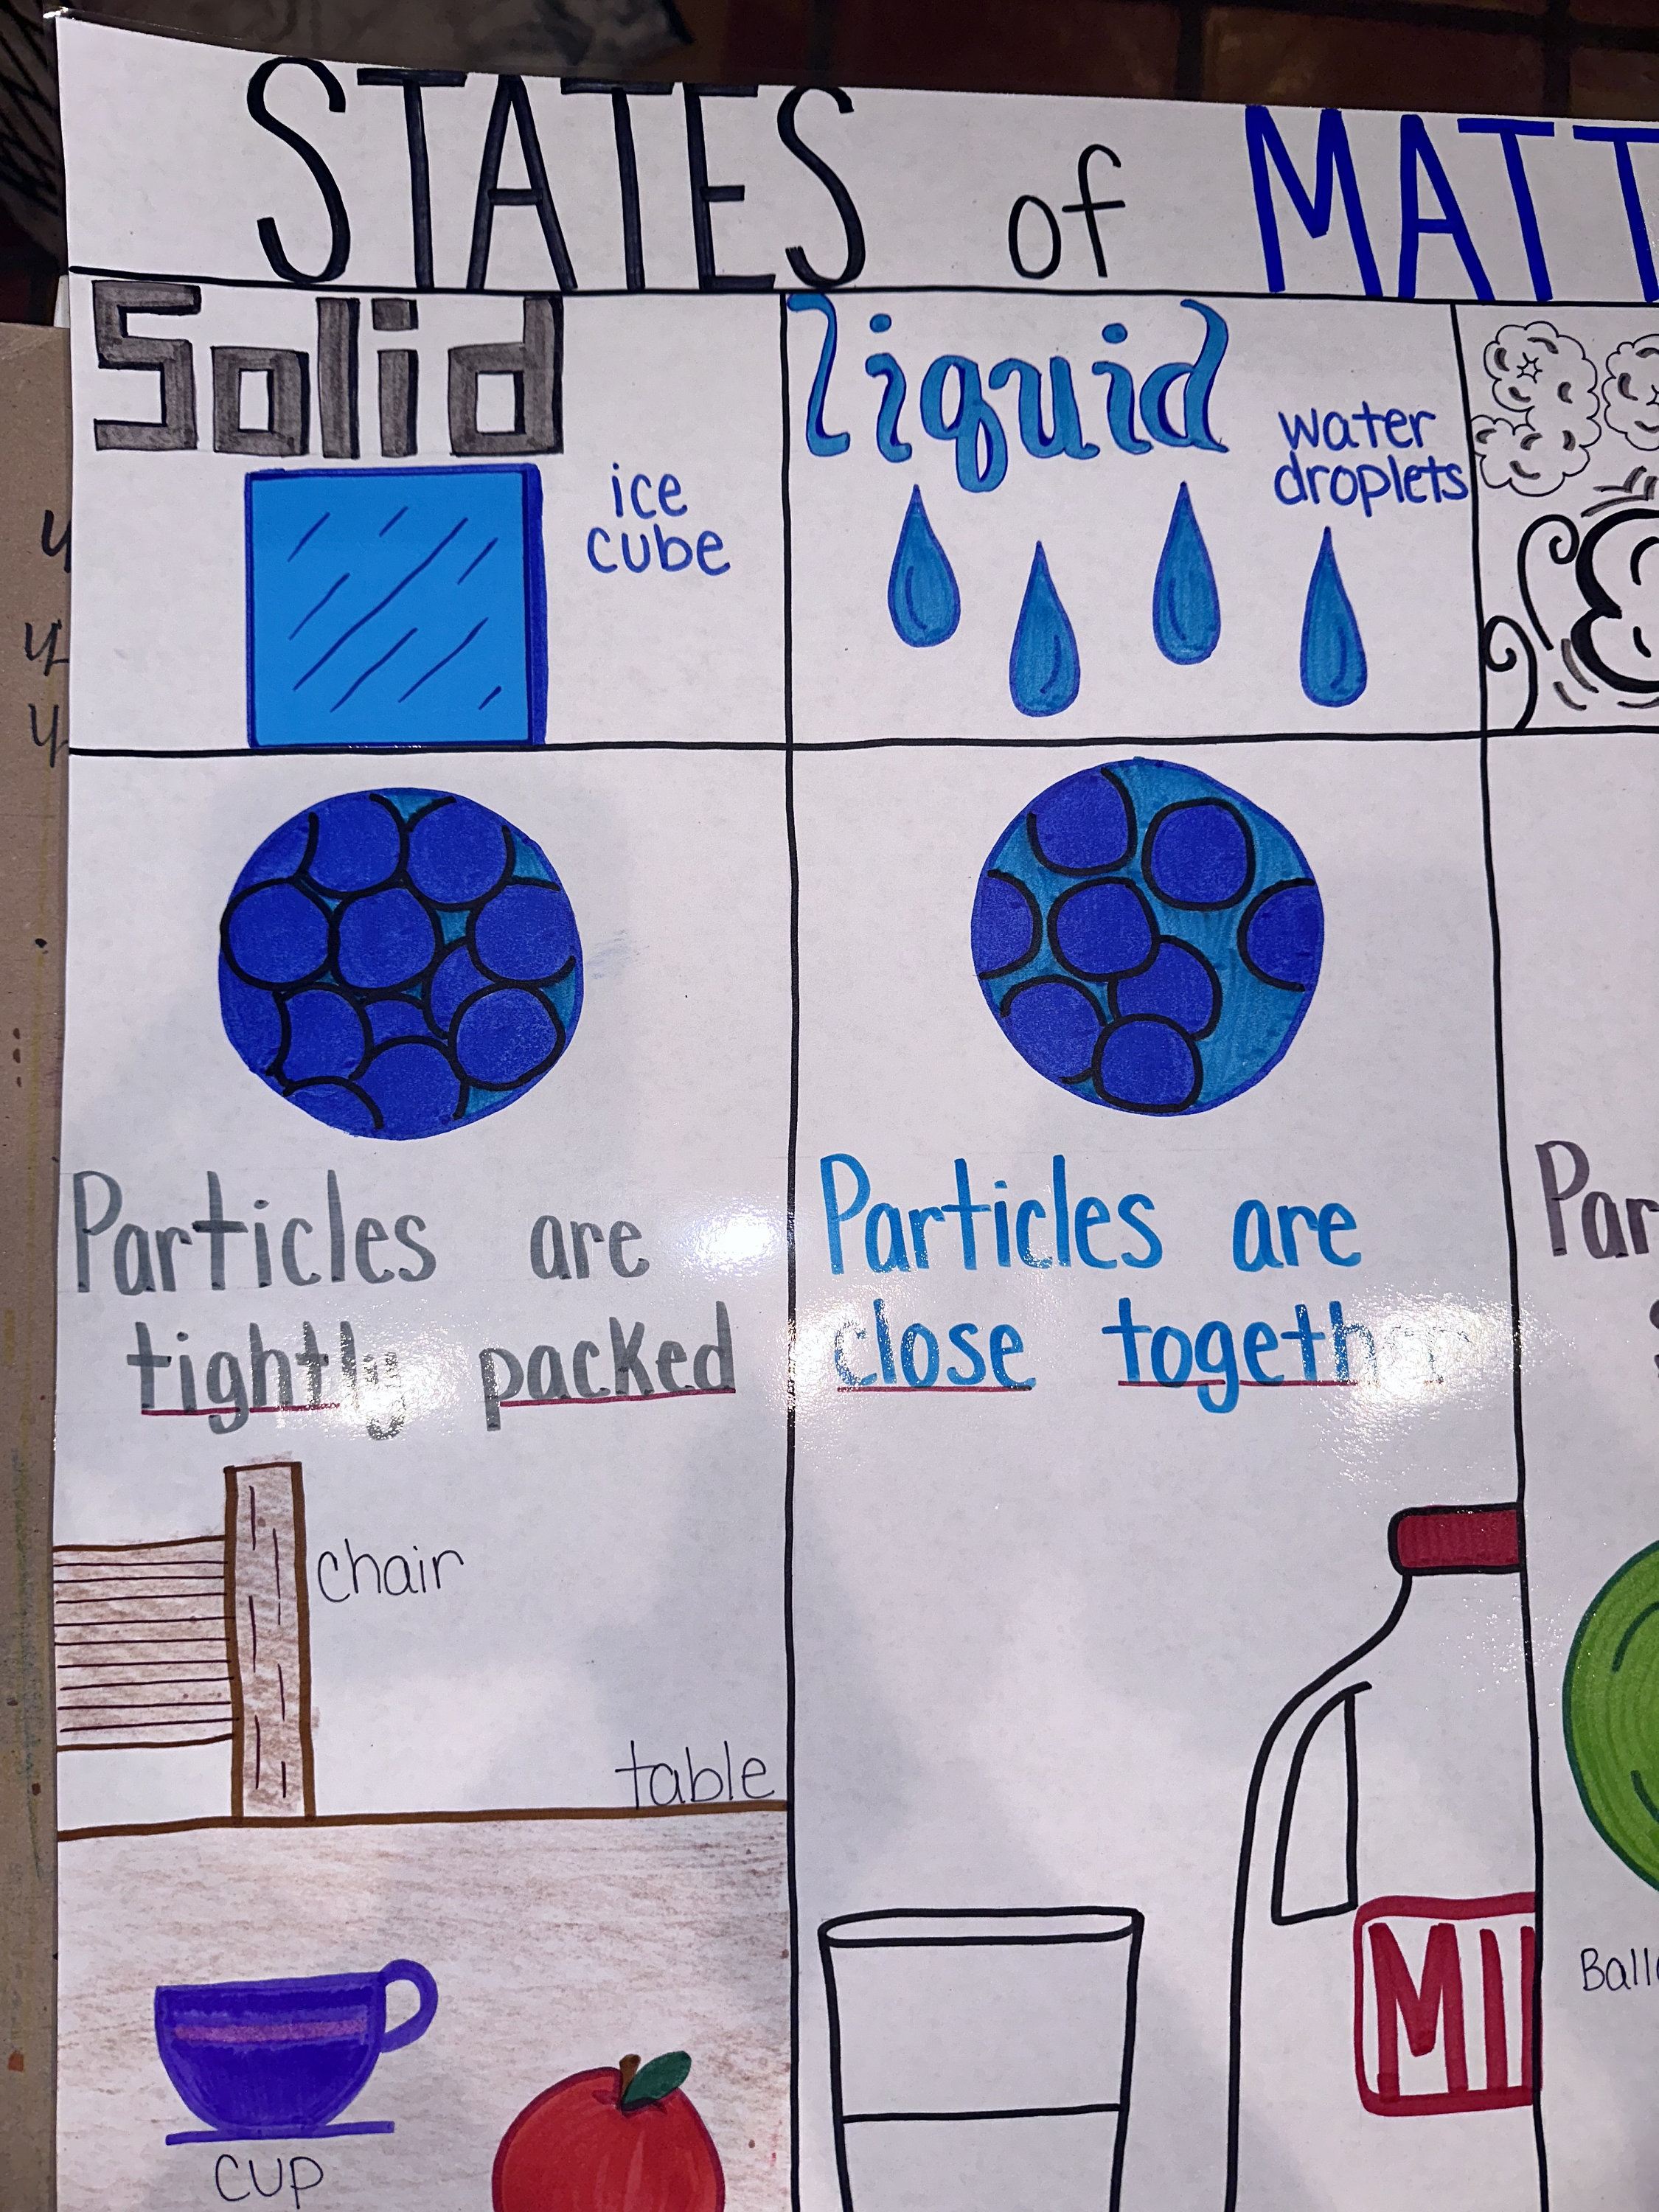 STATES of MATT
Solid
ice
cube
liquid
water
droplets
Particles are
tightly packed
Particles are
close together
Par
chair
table
cup
MI
Ball